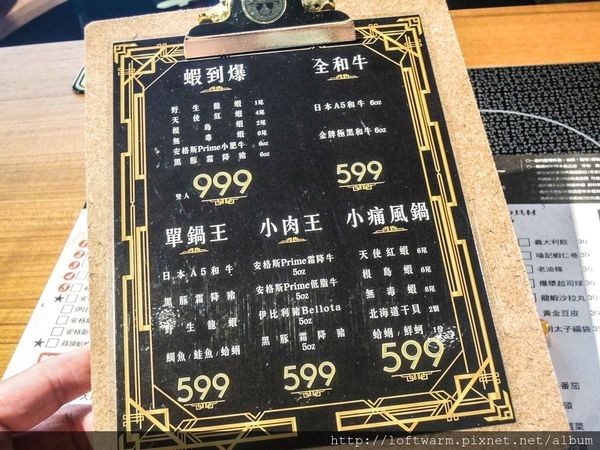 蝦到爆
野生龍蝦 1尾
天使紅蝦 4尾
根島蝦 2尾
無毒蝦 6尾
安格斯Prime小肥牛 6oz
黑豚霜降豬 6oz
雙人 999
全和牛
日本A5和牛 6oz
金牌極黑和牛 6oz
599
單鍋王
日本A5和牛
黑豚霜降豬
野生龍蝦
鯛魚/鮭魚/蛤蜊
599
小肉王
安格斯Prime霜降牛
5oz
安格斯Prime低脂牛
5oz
伊比利豬Bellota
5oz
黑豚霜降豬
5oz
599
小痛風鍋
天使紅蝦 6尾
根島蝦 6尾
無毒蝦 8尾
北海道干貝 2顆
蛤蜊/鮮蚵 10
599
義大利餃 30
嗑記蝦仁卷 30
老油條 30
爆漿起司球 30
龍蝦沙拉丸 30
黃金豆皮 30
明太子福袋 30
番茄
http://loftwarm.pixnet.net/album